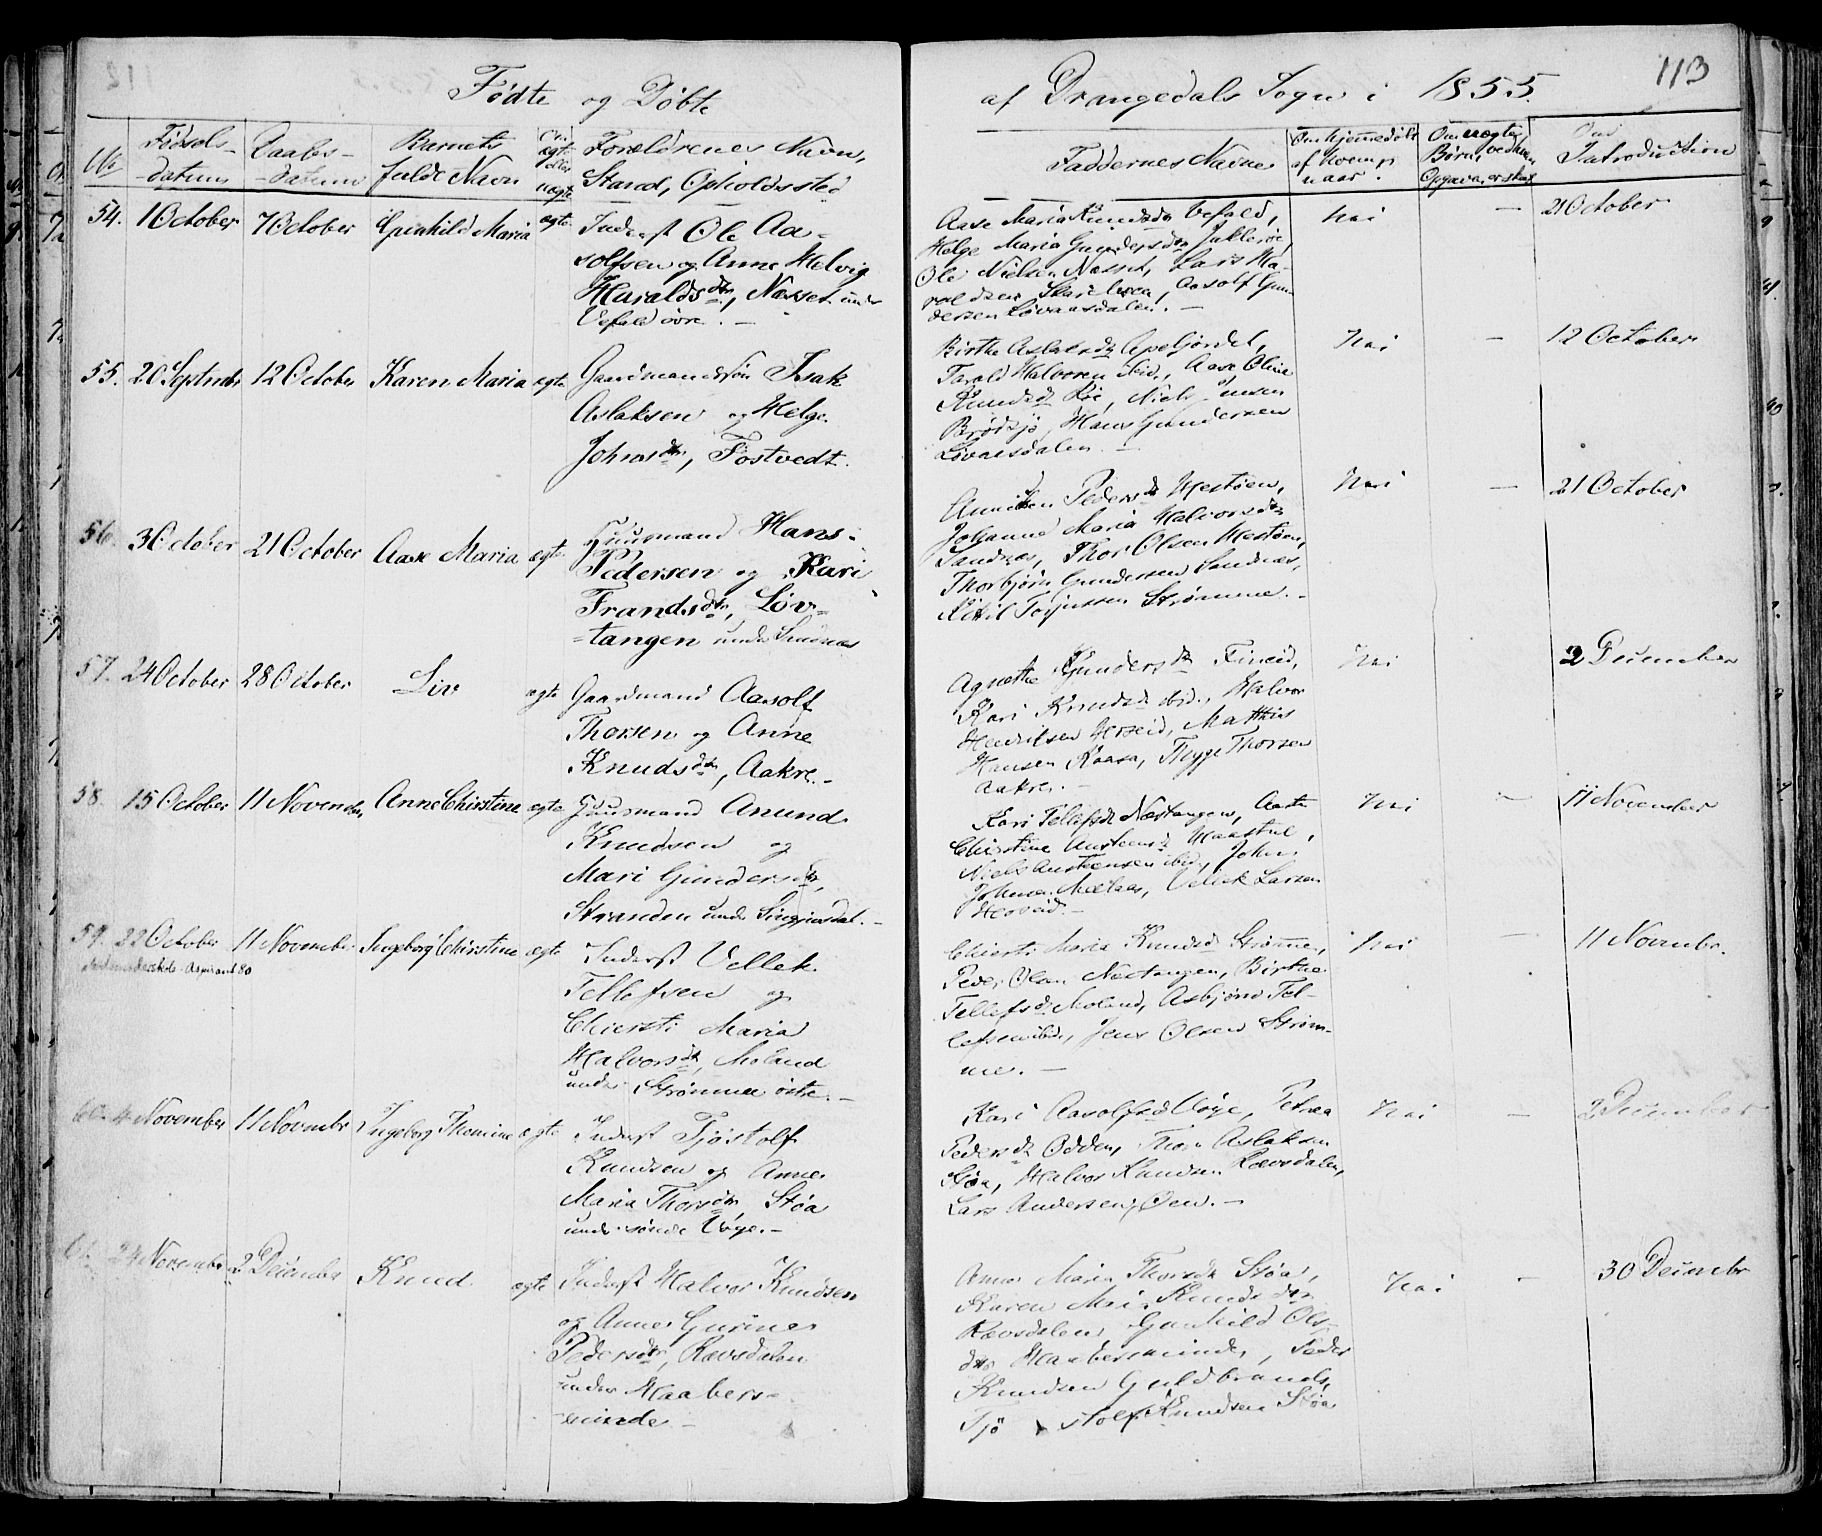 113
Fødte og Døbte
af Drangedals Sogn i 1855.
No
Fødsels-
datum
Daabs-
datum
Barnets
fulde Navn
Om
ægte
eller
uægte
Forældrenes Navn,
Stand, Opholdssted
Faddernes Navne
Om hjemmedøbt
af hvem,
naar.
Om uægte
Børn, ved hvem
Introduction
54. 1 October 7 October Gunhild Maria ægte
Inderst Ole Aa-
solfsen og Anne Helvig
Haraldsdtr, Næsset under
Vefald øvre. -
Aase Maria Knudsdtr Vefald,
Helge Maria Gundersdtr
Ole Nielsen Næsset, Lars Ha-
Aasolf Gun-
dersen Løvaasdalen. -
Nei - 21 October
55. 20 Septmbr 12 October Karen Maria ægte
Gaardmandssøn Isak
Aslaksen og Helge
Johnsdtr, Tostvedt.
Birthe Aslaksdtr
Tarald Halvorsen ibid., Aase Oline
Knudsdtr
Hans Gundersen
Løvaasdalen. -
Nei - 12 October
56. 3 October 21 October Aase Maria ægte
Huusmand Hans
Pedersen og Kari
Frandsdtr, Løv-
=tangen under Sandnæs
Anniken Pedersdtr Westøen,
Johanne Maria Halvorsdtr
Sandnæs, Thor Olsen Westøen,
Thorbjørn Gundersen Sandnæs,
Kittil Torjussen Strømme. -
Nei - 21 October
57. 24 October 28 October Liv ægte
Gaardmand Aasolf
Thorsen og Anne
Knudsdtr, Aakre. -
Agnethe Gundersdtr
Kari Knudsdtr ibid., Halvor
Henriksen Herseid, Mathias
Hansen Thorsen
Aakre. -
Nei 2 December
58. 15 October 11 November Anne Chirstine ægte
Huusmand Anund
Knudsen og
Mari Gundersdtr,
Stranden under
Kari Tellefsdtr Næstangen,
Chirstine Austensdtr
Niels Austensen ibid., John
Johnsen Vellek Larsen
Herseid. -
Nei - 11 November
59. 22 October 11 Novembr Ingeborg Chirstine ægte
Aspirant 80
Inderst Vellek
Tellefsen og
Chiersti Maria
Halvorsdtr, Moland
under Strømme østre. -
Chiersti Maria Knudsdtr Strømme,
Peder Olsen Næstangen, Birthe
Tellefsdtr Moland, Asbjørn Tel-
lefsen ibid., Jens Olsen Strøm-
me. -
Nei - 11 Novembr.
60. 4 November 11 Novembr Ingeborg Thomine ægte
Inderst Tjøstolf
Knudsen og Anne
Maria Thorsdtr, Støa
under søndre Voje. -
Kari Aasolfsdtr Voje, Petrea
Pedersdtr Odden, Thor Aslaksen
Støa, Halvor Knudsen Rævsdalen,
Lars Andersen Øen. -
Nei - 2 December
61. 24 Novembr 2 December Knud ægte
Inderst Halvor Knudsen
og Anne Gurine
Pedersdtr, Rævsdalen
under Haabers-
minde. -
Anne Maria Thorsdtr Støa,
Karen Maria Knudsdtr
Rævsdalen, Gunhild Ols-
dtr Haabersminde, Peder
Knudsen Guldbrands,
Tjø stolf Knudsen Støa
Nei - 30 Decembr